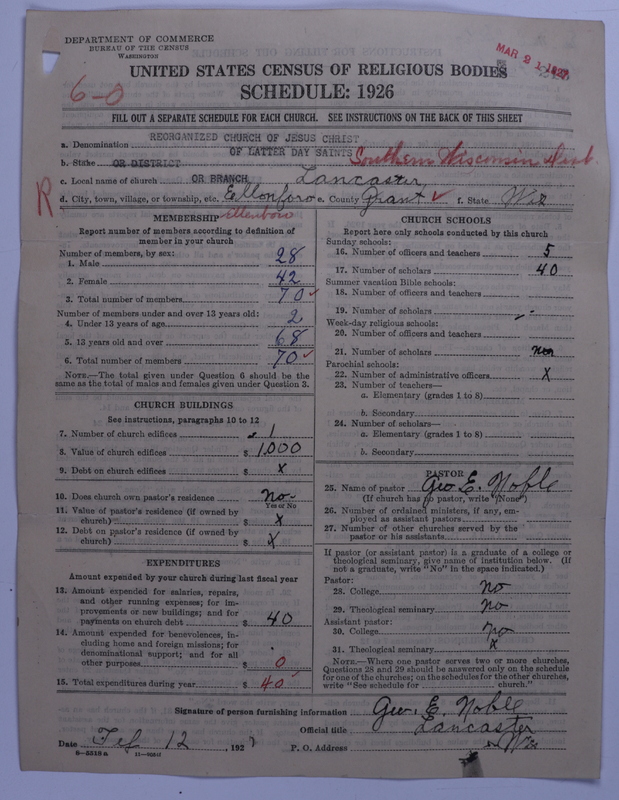 DEPARTMENT OF COMMERCE
BUREAU OF THE CENSUS
WASHINGTON
MAR 21 1927
UNITED STATES CENSUS OF RELIGIOUS BODIES
6-0
SCHEDULE: 1926
FILL OUT A SEPARATE SCHEDULE FOR EACH CHURCH. SEE INSTRUCTIONS ON THE BACK OF THIS SHEET
a. Denomination REORGANIZED CHURCH OF JESUS CHRIST
OF LATTER DAY SAINTS
b. State OR DISTRICT Southern Wisconsin Dist.
c. Local name of church OR BRANCH Lancaster
R
d. City, town, village, or township, etc. Ellonforo e. County Grant ✓ f. State Wis
Ellenboro
MEMBERSHIP
Report number of members according to definition of
member in your church
Number of members, by sex:
1. Male 28
2. Female 42
3. Total number of members 70 ✓
Number of members under and over 13 years old:
4. Under 13 years of age 2
5. 13 years old and over 68
6. Total number of members 70 ✓
NOTE.—The total given under Question 6 should be the
same as the total of males and females given under Question 3.
CHURCH BUILDINGS
See instructions, paragraphs 10 to 12
7. Number of church edifices 1
8. Value of church edifices $ 1,000
9. Debt on church edifices $ x
10. Does church own pastor's residence no
Yes or No
11. Value of pastor's residence (if owned by
church) $ x
12. Debt on pastor's residence (if owned by
church) $ x
EXPENDITURES
Amount expended by your church during last fiscal year
13. Amount expended for salaries, repairs,
and other running expenses; for im-
provements or new buildings; and for
payments on church debt $ 40
14. Amount expended for benevolences, in-
cluding home and foreign missions; for
denominational support; and for all
other purposes $ 0
15. Total expenditures during year $ 40 ✓
CHURCH SCHOOLS
Report here only schools conducted by this church
Sunday schools:
16. Number of officers and teachers 5
17. Number of scholars 40
Summer vacation Bible schools:
18. Number of officers and teachers
19. Number of scholars
Week-day religious schools:
20. Number of officers and teachers
21. Number of scholars
Parochial schools:
22. Number of administrative officers x
23. Number of teachers—
a. Elementary (grades 1 to 8)
b. Secondary
24. Number of scholars—
a. Elementary (grades 1 to 8)
b. Secondary
PASTOR
25. Name of pastor Geo E. Noble
(If church has no pastor, write "None")
26. Number of ordained ministers, if any, em-
ployed as assistant pastors
27. Number of other churches served by the
pastor or his assistants
If pastor (or assistant pastor) is a graduate of a college or
theological seminary, give name of institution below. (If
not a graduate, write "No" in the space indicated.)
Pastor:
28. College no
29. Theological seminary no
Assistant pastor:
30. College no
31. Theological seminary x
NOTE.—Where one pastor serves two or more churches,
Questions 28 and 29 should be answered only on the schedule
for one of the churches; on the schedules for the other churches,
write "See schedule for church."
Signature of person furnishing information Geo. E. Noble
Official title Lancaster
Date Feb 12, 1927 P. O. Address Wis
8-5318a